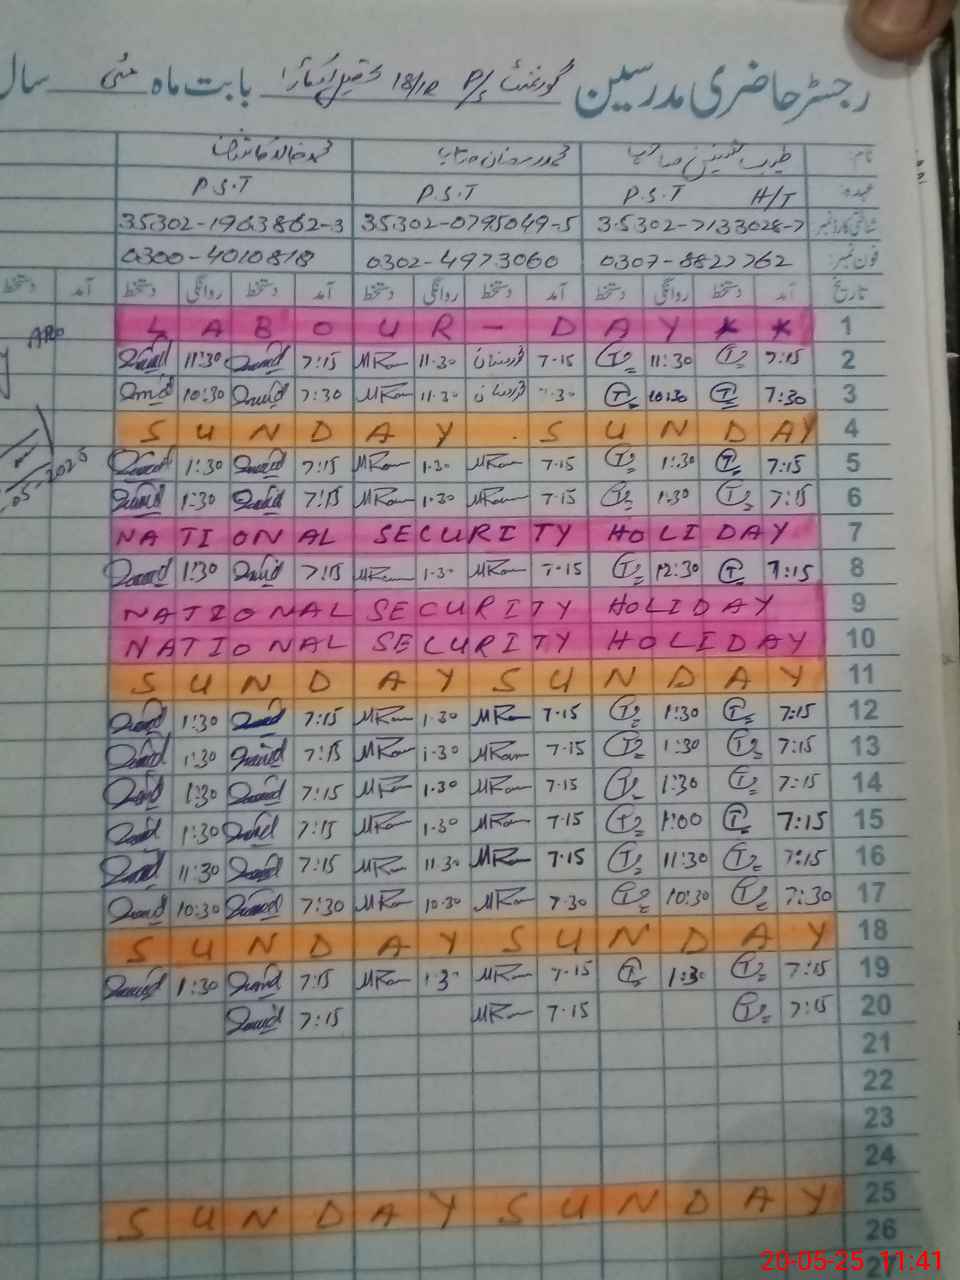 رجسٹر حاضری مدرسین گورنمنٹ P/S 18/1R تحصیل اوکاڑا بابت ماہ مئی سال
نام: محمد رمضان محمد خالد
عہدہ P.S.T H/T P.S.T P.S.T
شناختی کارڈ نمبر 35302-7133028-7 35302-0795049-5 35302-1963862-3
فون نمبر: 0307-8827762 0302-4973060 0300-4010818
تاریخ آمد دستخط روانگی دستخط آمد دستخط روانگی دستخط آمد دستخط روانگی دستخط آمد دستخط
LABOUR-DAY ** 1
11:30 7:15 MRam 11.30 محمد رمضان 7.15 T 11:30 T 7:15 2
10:30 7:30 MRam 11.30 محمد رمضان .30 T 10:30 T 7:30 3
SUNDAY . SUNDAY 4
1:30 7:15 MRam 1.30 MRam 7.15 T 1:30 T 7:15 5
05-2025
1:30 7:15 MRam 1.30 MRam 7.15 T 1:30 T 7:15 6
NATIONAL SECURITY HOLIDAY 7
1:30 7:15 MRam 1.30 MRam 7.15 T 12:30 T 7:15 8
NATIONAL SECURITY HOLIDAY 9
NATIONAL SECURITY HOLIDAY 10
SUNDAY SUNDAY 11
1:30 7:15 MRam 1.30 MRam 7.15 T 1:30 T 7:15 12
1:30 7:15 MRam 1.30 MRam 7.15 T 1:30 T 7:15 13
1:30 7:15 MRam 1.30 MRam 7.15 T 1:30 T 7:15 14
1:30 7:15 MRam 1.30 MRam 7.15 T 1:00 T 7:15 15
11:30 7:15 MRam 11.30 MRam 7.15 T 11:30 T 7:15 16
10:30 7:30 MRam 10.30 MRam 7.30 T 10:30 T 7:30 17
SUNDAY SUNDAY 18
1:30 7:15 MRam 1.3 MRam 7.15 T 1:30 T 7:15 19
7:15 MRam 7.15 T 7:15 20
21
22
23
24
SUNDAY SUNDAY 25
26
27
20-05-25 11:41